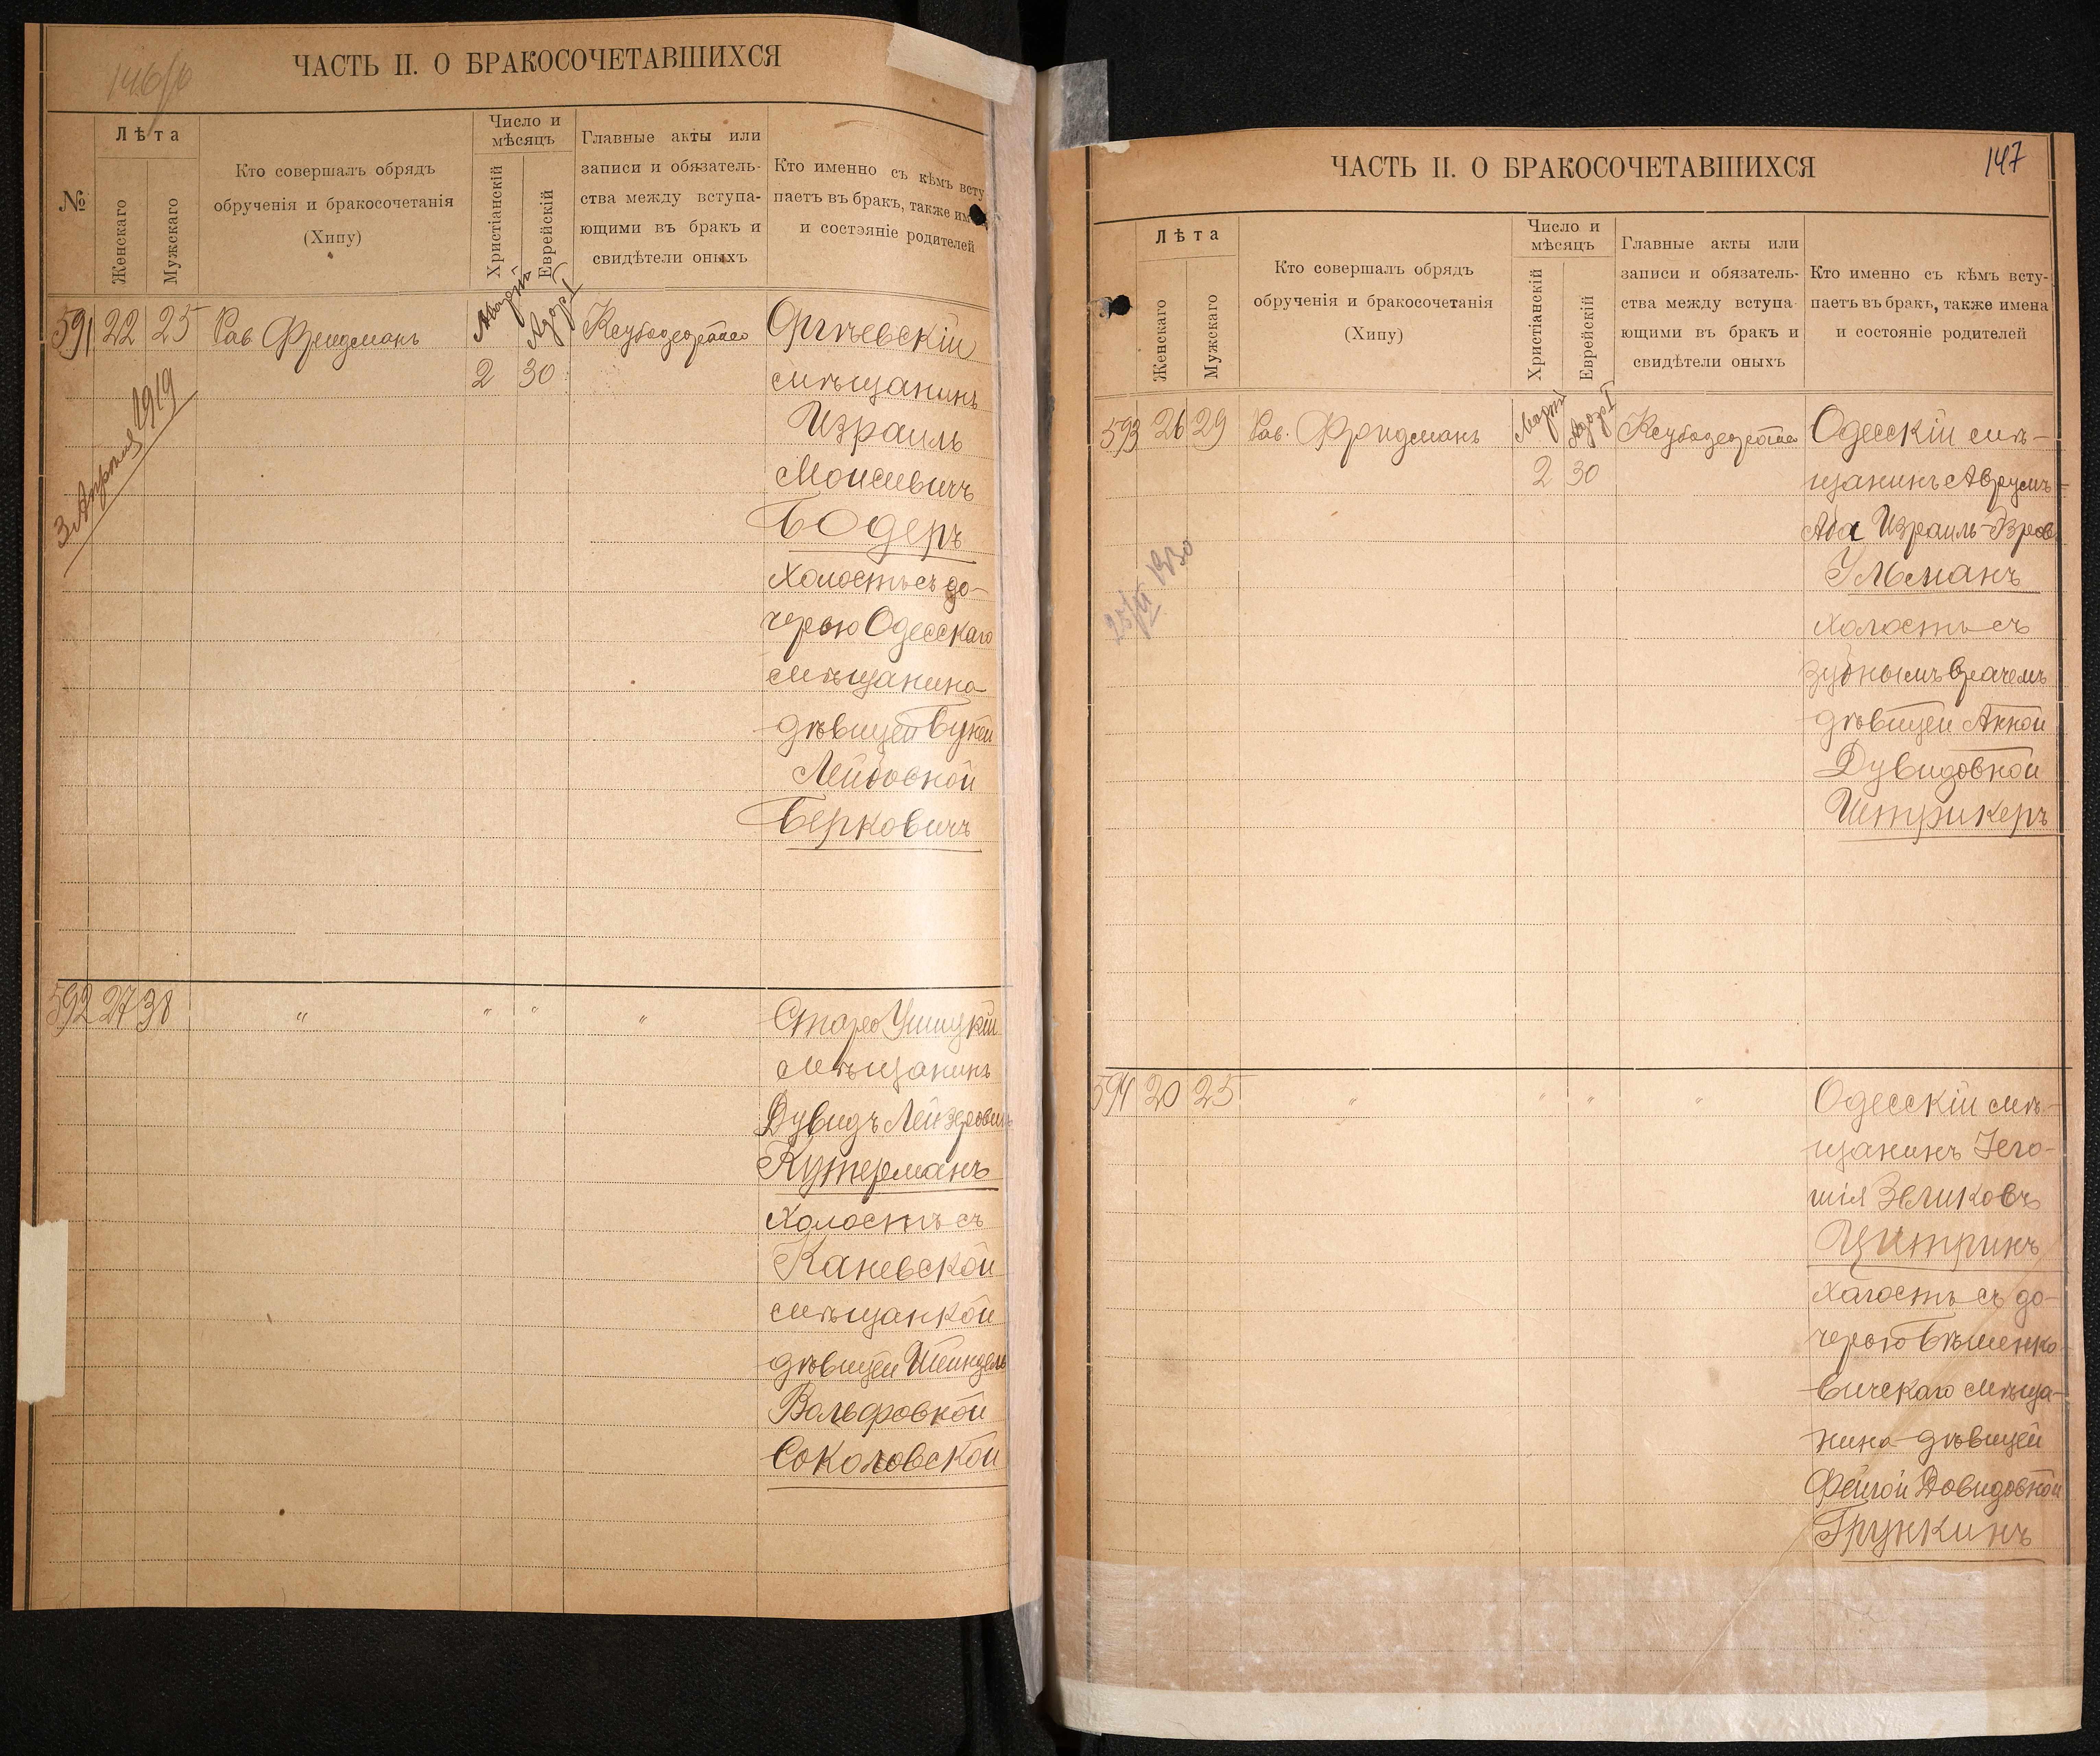 146/б
ЧАСТЬ II. О БРАКОСОЧЕТАВШИХСЯ
№
Лѣта
Женскаго
Мужскаго
Кто совершалъ обрядъ
обрученія и бракосочетанія
(Хипу)
Число и
мѣсяцъ
Христіанскій
Еврейскій
Главные акты или
записи и обязатель-
ства между вступа-
ющими въ бракъ и
свидѣтели оныхъ
Кто именно съ кѣмъ всту
паетъ въ бракъ, также им
и состояніе родителей
591 22 25 Рав Фридманъ
Мартъ
2
Адоръ I
30
Оргѣевскій
мѣщанинъ
Израиль
Моисеевичъ
Бодеръ
холостъ съ до-
черью Одесскаго
мѣщанина
дѣвицей
Лейбовной
Берковичъ
3 Апрѣля 1919
592 27 38 " " " "
Старо Ушицкій
мѣщанинъ
Дувидъ Лейзерович
Кутерманъ
холостъ съ
Каневской
мѣщанкой
дѣвицей Шейндель
Вольфовной
Соколовской
147
ЧАСТЬ II. О БРАКОСОЧЕТАВШИХСЯ
Лѣта
Женскаго
Мужскаго
Кто совершалъ обрядъ
обрученія и бракосочетанія
(Хипу)
Число и
мѣсяцъ
Христіанскій
Еврейскій
Главные акты или
записи и обязатель-
ства между вступа-
ющими въ бракъ и
свидѣтели оныхъ
Кто именно съ кѣмъ всту-
паетъ въ бракъ, также имена
и состояніе родителей
593 26 29 Рав. Фридманъ
Мартъ
2
Адоръ I
30
Одесскій мѣ-
щанинъ Аврумъ-
Аба Израиль
Ульманъ
холостъ съ
зубнымъ врачемъ
дѣвицей Анной
Дувидовной
Штрикеръ
594 20 25 " " " "
Одесскій мѣ-
щанинъ Іего-
шія Зеликовъ
Цитринъ
холостъ съ до-
черью Бѣшенко-
вичскаго мѣща-
нина дѣвицей
Фейгой Довидовной
Грункинъ